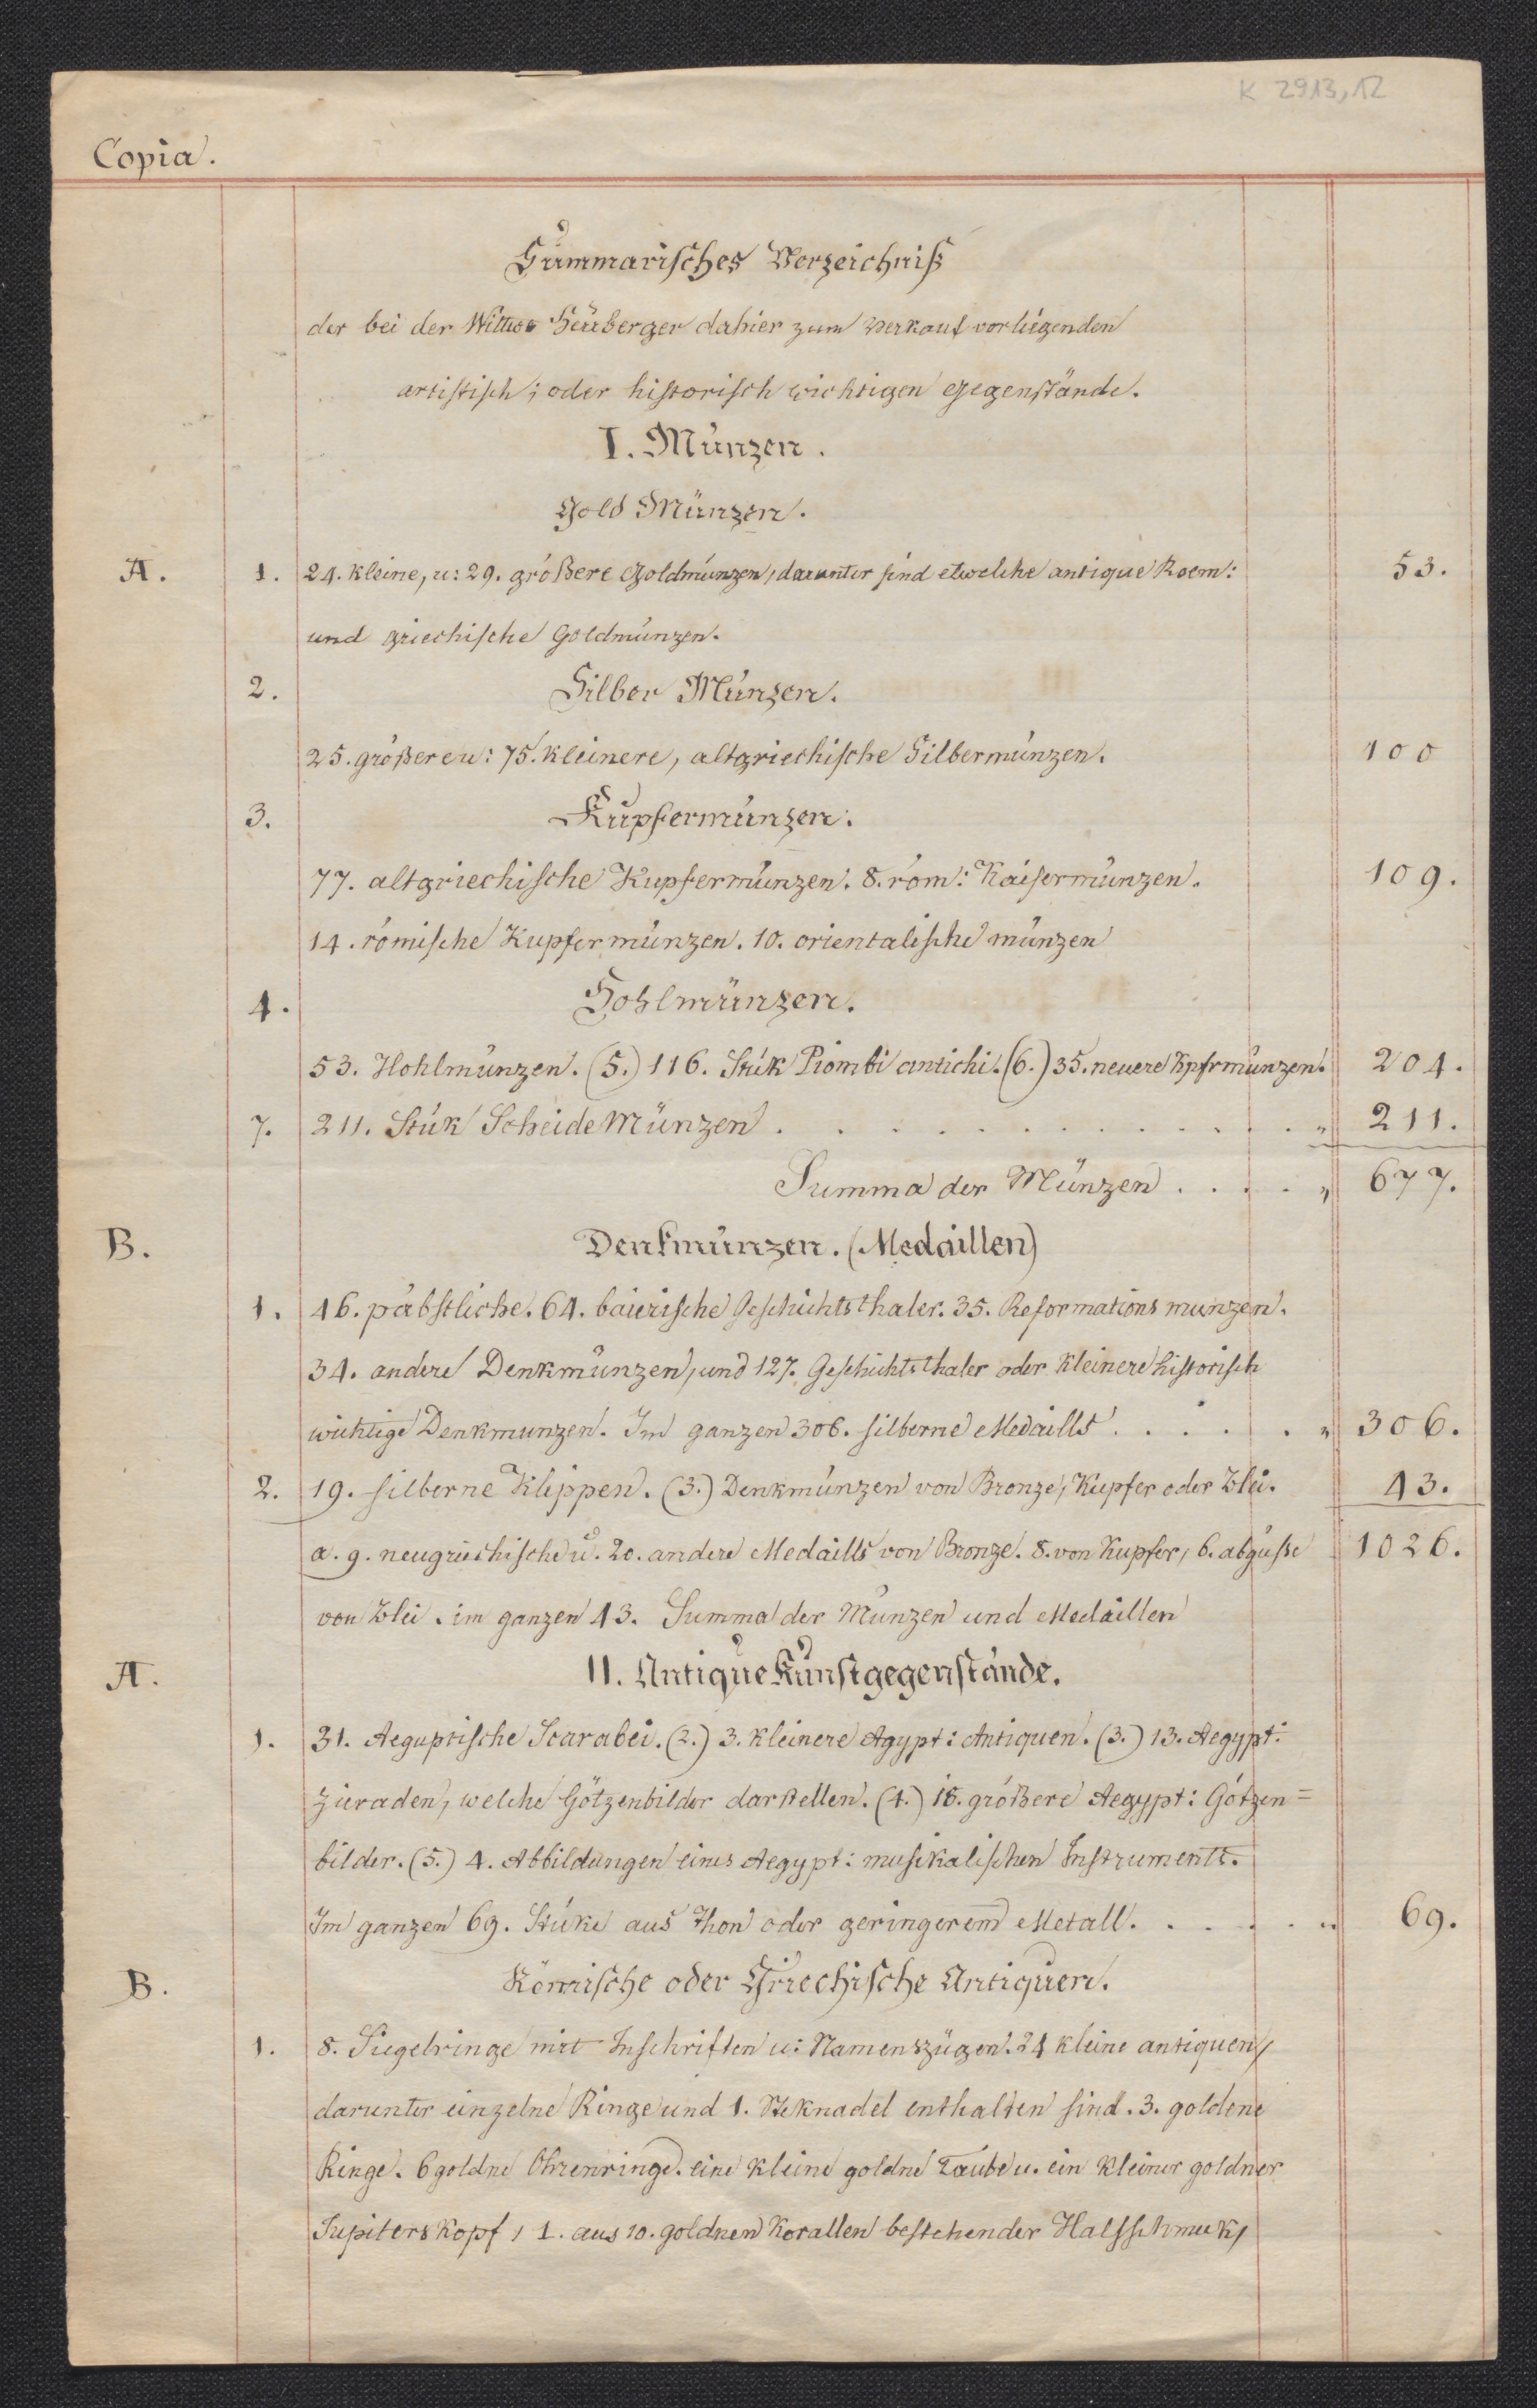 K 2913,12
Copia.
Summarisches Verzeichniß
der bei der Wittwe Heuberger dahier zum Verkauf vorliegenden
artistisch; oder historisch wichtigen Gegenstände.
I. Münzen.
Gold Münzen.
A. 1. 24. kleine, u: 29. größere Goldmünzen, darunter sind etwelche antique Roem: 53.
und griechische Goldmünzen.
2. Silber Münzen.
25. größere u: 75. kleinere, altgriechische Silbermünzen. 100
3. Kupfermünzen.
77. altgriechische Kupfermünzen. 8. röm: Kaisermünzen. 109.
14. römische Kupfermünzen. 10. orientalische münzen
4. Hohlmünzen.
53. Hohlmünzen. (5.) 116. Stük Piombi antichi. (6.) 35. neuere Kpfrmünzen. 204.
7. 211. Stük Scheide Münzen . . . . . . . . . . . „ 211.
Summa der Münzen . . . . „ 677.
B. Denkmünzen. (Medaillen)
1. 46. päbstliche. 64. baierische Geschichtsthaler. 35. Reformations munzen.
34. andere Denkmünzen, und 127. Geschichtsthaler oder kleinere historisch
wichtige Denkmunzen. Im ganzen 306. silberne Medaills . . . . . „ 306.
2. 19. silberne Klippen. (3.) Denkmünzen von Bronze, Kupfer oder Blei. 43.
a. 9. neugriechische u. 20. andere Medaills von Bronze. 8. von Kupfer, 6. abgüße 1026.
von Blei. im ganzen 43. Summa der Münzen und Medaillen
II. Antique Kunstgegenstände.
A.
1. 31. Aeguptische Scarabei. (2.) 3. kleinere Agypt: Antiquen. (3.) 13. Aegypt:
Zieraden, welche Götzenbilder darstellen. (4.) 18. größere Aegypt: Götzen=
bilder. (5.) 4. Abbildungen eines Aegypt: musikalischen Instruments.
Im ganzen 69. Stüke aus Thon oder geringerem Metall. . . . . . „ 69.
B. Römische oder Griechische Antiquen.
1. 8. Siegelringe mit Inschriften u: Namenszügen. 24 kleine antiquen,
darunter einzelne Ringe und 1. Steknadel enthalten sind. 3. goldene
Ringe. 6 goldne Ohrenringe. eine kleine goldne Taube u. ein kleiner goldner
Jupiters Kopf, 1. aus 10. goldnen Korallen bestehender Halsschmuk,